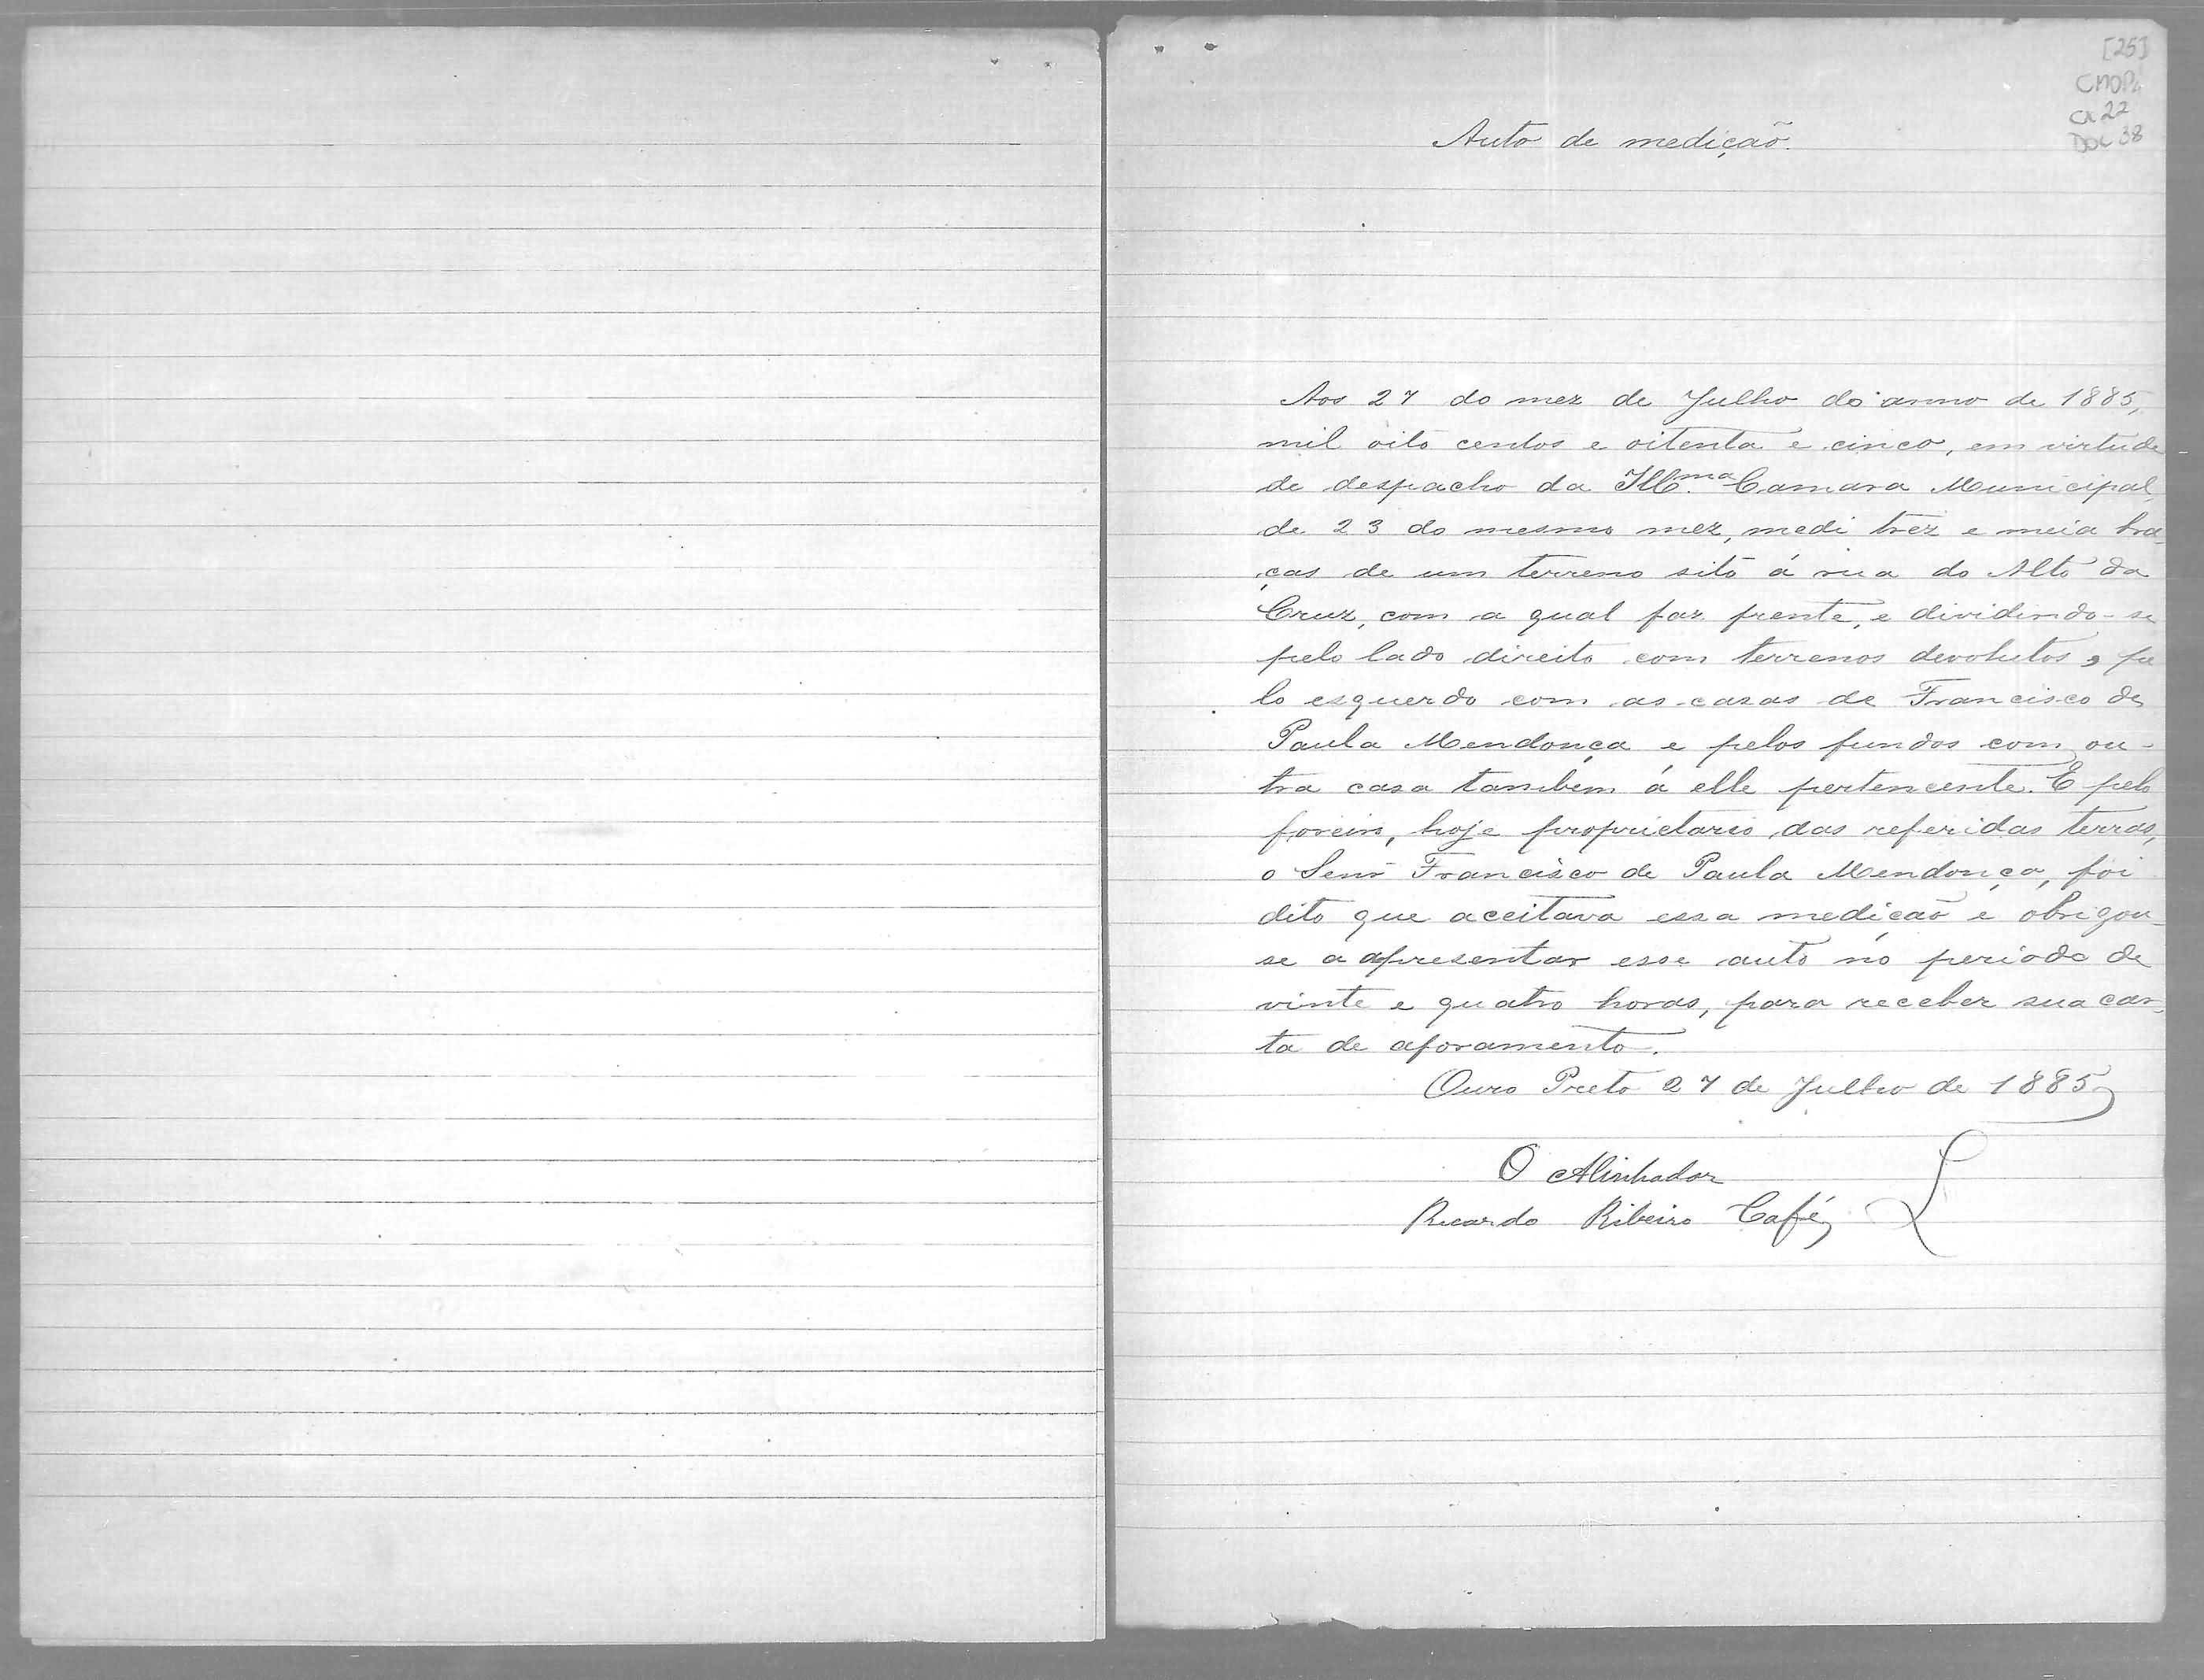 [25]
CMOP
Cx 22
DOC 38
Auto de medição.
Aos 27 do mez de Julho do anno de 1885,
mil oito centos e oitenta e cinco, em virtude
de despacho da Illma. Camara Municipal,
de 23 do mesmo mez, medi trez e meia bra-
ças de um terreno sito á rua do Alto da
Cruz, com a qual faz frente, e dividindo-se
pelo lado direito com terrenos devolutos, pe
lo esquerdo com as casas de Francisco de
Paula Mendonça e pelos fundos com ou-
tra casa tambem á elle pertencente. E pelo
foreiro, hoje proprietario das referidas terras,
o Senr Francisco de Paula Mendonça, foi
dito que aceitava essa medição e obrigou-
se a apresentar esse auto no periodo de
vinte e quatro horas, para receber sua car-
ta de aforamento.
Ouro Preto 27 de Julho de 1885
O Alinhador
Ricardo Ribeiro Café